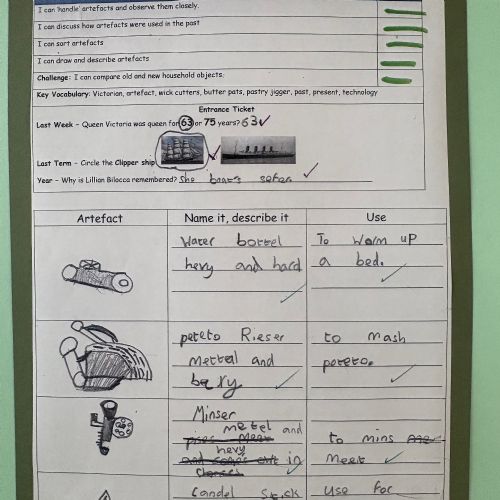 I can 'handle' artefacts and observe them closely.
I can discuss how artefacts were used in the past
I can sort artefacts
I can draw and describe artefacts
Challenge: I can compare old and new household objects.
Key Vocabulary: Victorian, artefact, wick cutters, butter pats, pastry jigger, past, present, technology
Entrance Ticket
Last Week – Queen Victoria was queen for 63 or 75 years? 63
Last Term – Circle the Clipper ship
Year – Why is Lillian Bilocca remembered? She
Artefact Name it, describe it Use
Water bottel
hevy and hard
To worm up
a bed.
peteto Rieser
mettal and
to mash
peteto.
Minser
metel and
hevy
in
to mins
meet
candel stick
use for